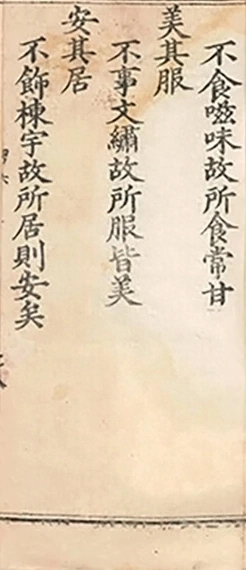 不食嗞味故所食常甘
美其服
不事文繡故所服皆美
安其居
不飾棟宇故所居則安矣